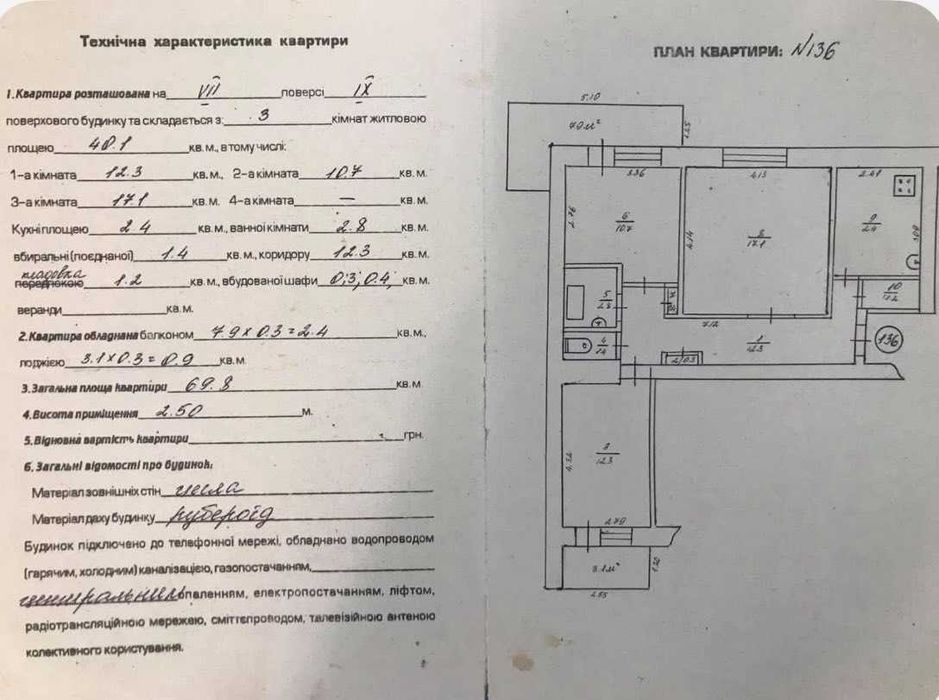 Технічна характеристика квартири
1. Квартира розташована на VII поверсі IX
поверхового будинку та складається з: 3 кімнат житловою
площею 40.1 кв. м, в тому числі:
1-а кімната 12.3 кв. м., 2-а кімната 10.7 кв. м.
3-а кімната 17.1 кв. м. 4-а кімната — кв. м.
Кухні площею 2.4 кв. м., ванної кімнати 2.8 кв. м.
вбиральні (поєднаної) 1.4 кв. м., коридору 12.3 кв. м.
кладовка
передпокою 1.2 кв. м., вбудованої шафи 0,3; 0.4, кв. м.
веранди кв. м.
2. Квартира обладнана балконом 7.9 x 0.3 = 2.4 кв. м.,
лоджією 3.1 x 0.3 = 0.9 кв. м.
3. Загальна площа квартири 69.8 кв. м
4. Висота приміщення 2.50 м.
5. Відновна вартість квартири грн.
6. Загальні відомості про будинок:
Матеріал зовнішніх стін цегла
Матеріал даху будинку рубероїд
Будинок підключено до телефонної мережі, обладнано водопроводом
(гарячим, холодним) каналізацією, газопостачанням,
центральним опаленням, електропостачанням, ліфтом,
радіотрансляційною мережею, сміттєпроводом, телевізійною антеною
колективного користування.
ПЛАН КВАРТИРИ: №136
5.10
7.9 м²
3.36
4.13
2.41
2.76
6
10.7
4.14
8
17.1
9
3.00
5
2.8
10
1.2
7.12
4
1.4
1
12.3
136
4.52
7
12.3
2.70
3.1 м²
1.20
2.55